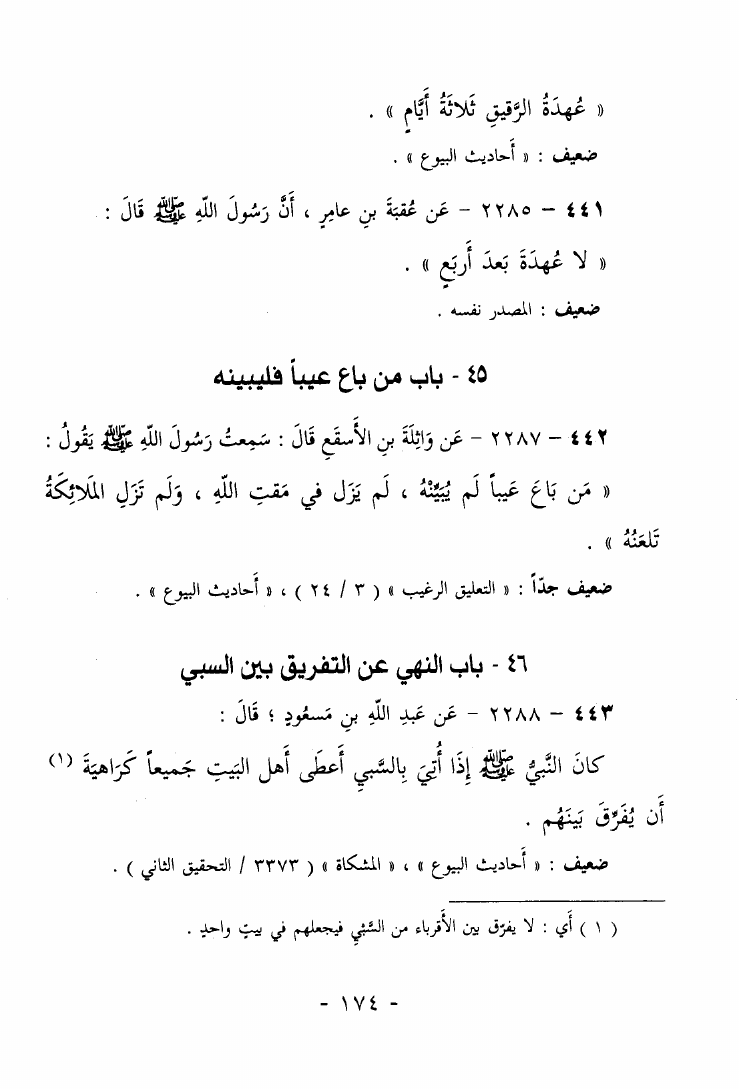 « عُهدَةُ الرَّقيقِ ثَلاثَةُ أَيَّامٍ » .
ضعيف : « أحاديث البيوع » .
٤٤١ – ٢٢٨٥ – عَن عُقبَةَ بنِ عامِرٍ ، أَنَّ رَسُولَ اللّهِ ﷺ قَالَ :
« لا عُهدَةَ بَعدَ أَربَعٍ » .
ضعيف : المصدر نفسه .
٤٥ - باب من باع عيباً فليبينه
٤٤٢ – ٢٢٨٧ – عَن وَاثِلَةَ بنِ الأَسقَعِ قَالَ : سَمِعتُ رَسُولَ اللّهِ ﷺ يَقُولُ :
« مَن بَاعَ عَيباً لَم يُبَيِّنْهُ ، لَم يَزَل في مَقتِ اللّهِ ، وَلَم تَزَلِ المَلائِكَةُ
تَلعَنُهُ » .
ضعيف جدّاً : « التعليق الرغيب » ( ٣ / ٢٤ ) ، « أحاديث البيوع » .
٤٦ - باب النهي عن التفريق بين السبي
٤٤٣ – ٢٢٨٨ – عَن عَبدِ اللّهِ بنِ مَسعُودٍ ؛ قَالَ :
كانَ النَّبيُّ ﷺ إِذَا أُتِيَ بِالسَّبيِ أَعطَى أَهل البَيتِ جَميعاً كَرَاهيَةَ (١)
أَن يُفَرِّقَ بَينَهُم .
ضعيف : « أحاديث البيوع » ، « المشكاة » ( ٣٣٧٣ / التحقيق الثاني ) .
( ١ ) أي : لا يفرّق بين الأقرباء من السَّبْيِ فيجعلهم في بيتٍ واحدٍ .
- ١٧٤ -